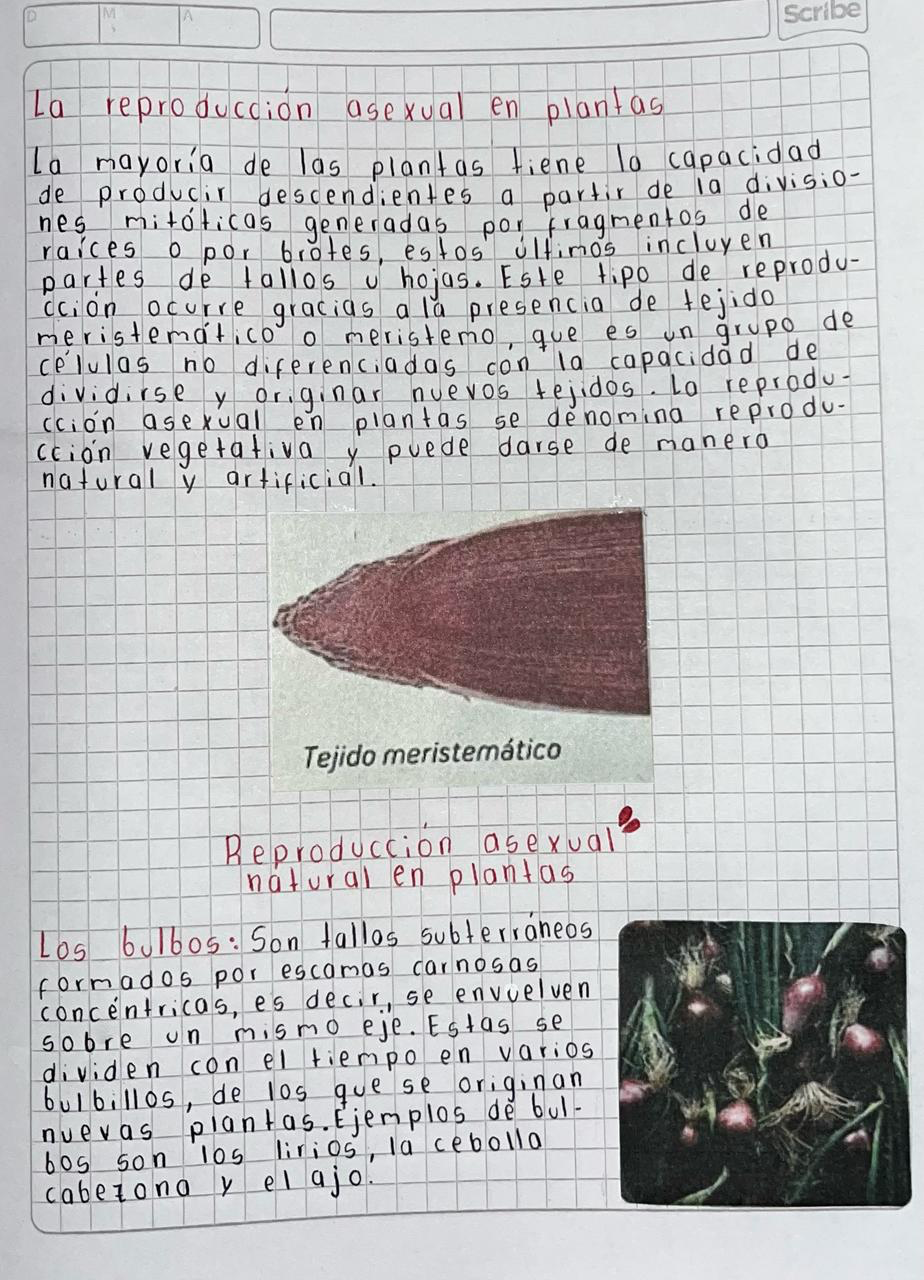 D
M
A
Scribe
La reproducción asexual en plantas
La mayoría de las plantas tiene la capacidad
de producir descendientes a partir de la divisio-
nes mitóticas generadas por fragmentos de
raíces o por brotes, estos últimos incluyen
partes de tallos u hojas. Este tipo de reprodu-
cción ocurre gracias a la presencia de tejido
meristemático o meristemo, que es un grupo de
células no diferenciadas con la capacidad de
dividirse y originar nuevos tejidos. La reprodu-
cción asexual en plantas se denomina reprodu-
cción vegetativa y puede darse de manera
natural y artificial.
Tejido meristemático
Reproducción asexual
natural en plantas
Los bulbos: Son tallos subterráneos
formados por escamas carnosas
concéntricas, es decir, se envuelven
sobre un mismo eje. Estas se
dividen con el tiempo en varios
bulbillos, de los que se originan
nuevas plantas. Ejemplos de bul-
bos son los lirios, la cebolla
cabezona y el ajo.